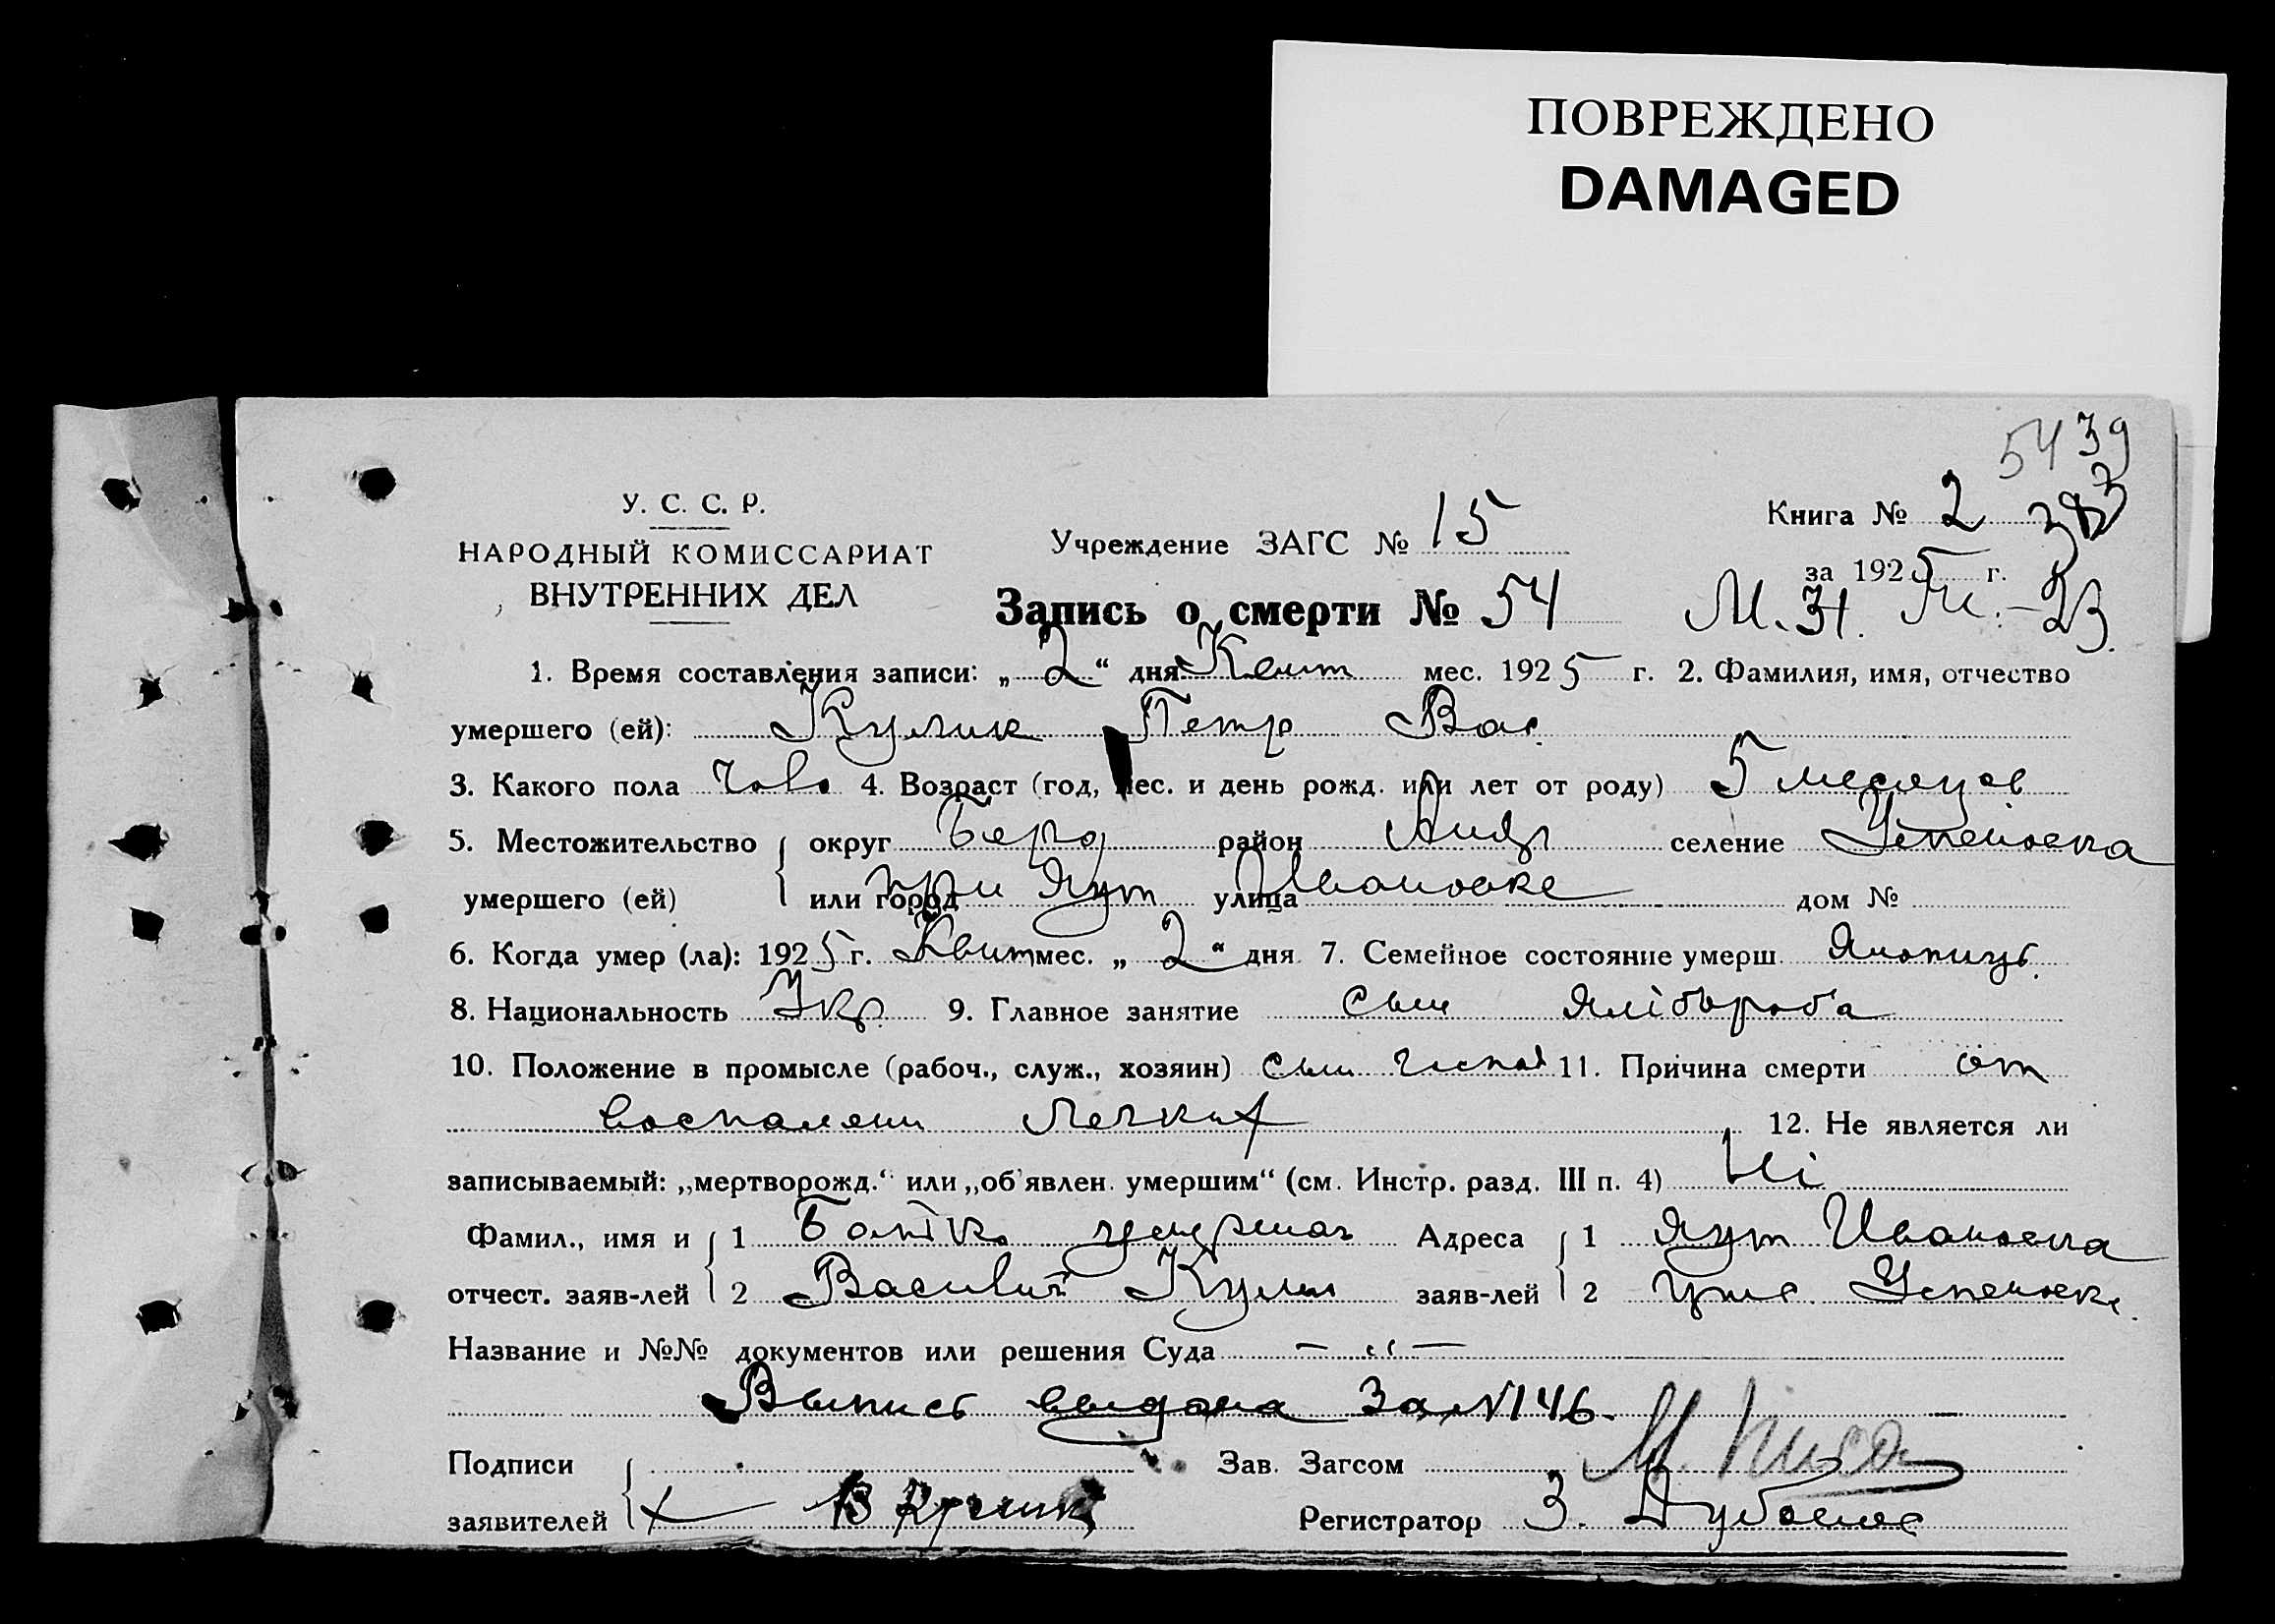 ПОВРЕЖДЕНО
DAMAGED
5439
У. С. С. Р.
НАРОДНЫЙ КОМИССАРИАТ
ВНУТРЕННИХ ДЕЛ
Учреждение ЗАГС № 15
Книга № 2 383
за 1925 г.
Запись о смерти № 54
1. Время составления записи: „2“ дня Квит мес. 1925 г. 2. Фамилия, имя, отчество
умершего (ей): Кулик Петр Вас.
3. Какого пола Чолв 4. Возраст (год, мес. и день рожд. или лет от роду) 5 месяцов
5. Местожительство округ Берд район Андр селение Успеновка
умершего (ей) или город при Хут улица Ивановке дом №
6. Когда умер (ла): 1925 г. Квит мес. „2“ дня 7. Семейное состояние умерш.
8. Национальность Укр. 9. Главное занятие сын хлібороба
10. Положение в промысле (рабоч., служ., хозяин) сын 11. Причина смерти от
воспалени легких 12. Не является ли
записываемый: „мертворожд.“ или „об'явлен. умершим“ (см. Инстр. разд. III п. 4) Ні
Фамил., имя и 1 Батько умершаг Адреса 1 Хут Ивановка
отчест. заяв-лей 2 Василий Кулик заяв-лей 2 Успеновке
Название и №№ документов или решения Суда — „ —
Выпись выдана За №146.
Подписи Зав. Загсом
заявителей В Кулик Регистратор З.